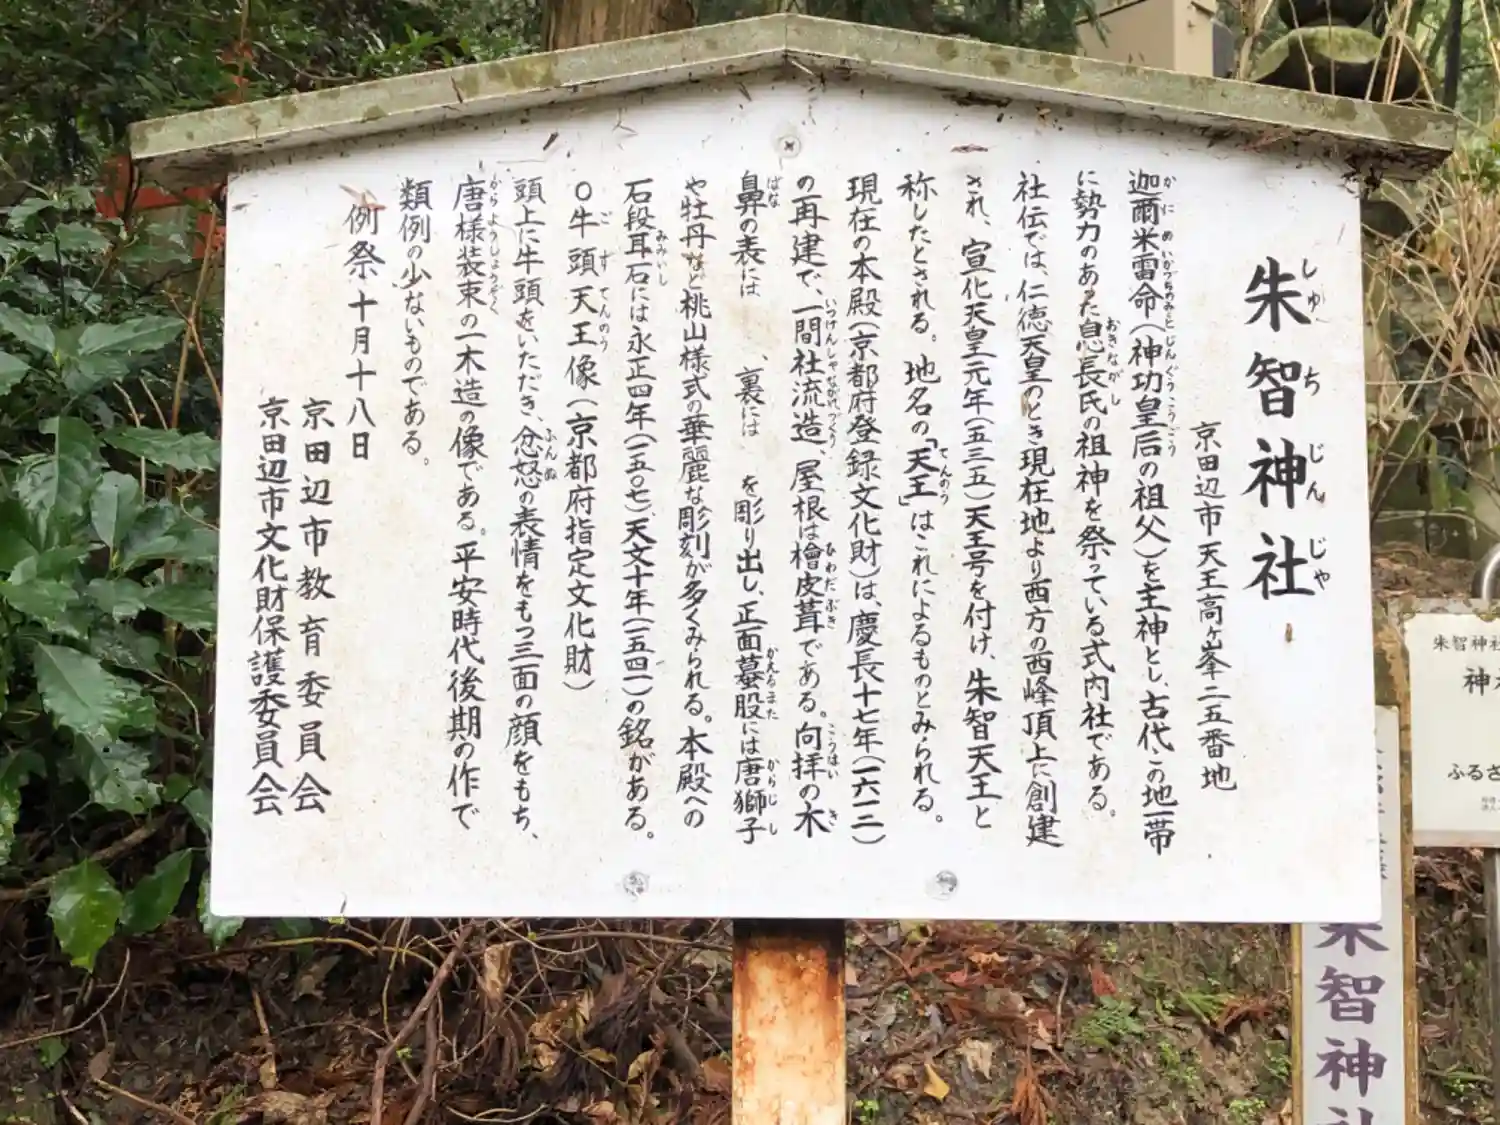 朱智神社
しゅちじんじゃ
京田辺市天王高ヶ峯二五番地
迦爾米雷命(神功皇后の祖父)を主神とし、古代この地一帯
かにめいかづちのみこと じんぐうこうごう
に勢力のあった息長氏の祖神を祭っている式内社である。
おきながし
社伝では、仁徳天皇のとき現在地より西方の西峰頂上に創建
され、宣化天皇元年(五三五)天王号を付け、朱智天王と
称したとされる。地名の「天王」はこれによるものとみられる。
てんのう
現在の本殿(京都府登録文化財)は、慶長十七年(一六一二)
の再建で、一間社流造、屋根は檜皮葺である。向拝の木
いっけんしゃながれづくり ひわだぶき こうはい き
鼻の表には 、裏には を彫り出し、正面蟇股には唐獅子
ばな かえるまた からじし
や牡丹など桃山様式の華麗な彫刻が多くみられる。本殿への
石段耳石には永正四年(一五〇七)、天文十年(一五四一)の銘がある。
みみいし
〇牛頭天王像(京都府指定文化財)
ごずてんのう
頭上に牛頭をいただき、忿怒の表情をもつ三面の顔をもち、
ふんぬ
唐様装束の一木造の像である。平安時代後期の作で
からようしょうぞく
類例の少ないものである。
例祭 十月十八日
京田辺市教育委員会
京田辺市文化財保護委員会
朱智神社
朱智神社
ふるさ